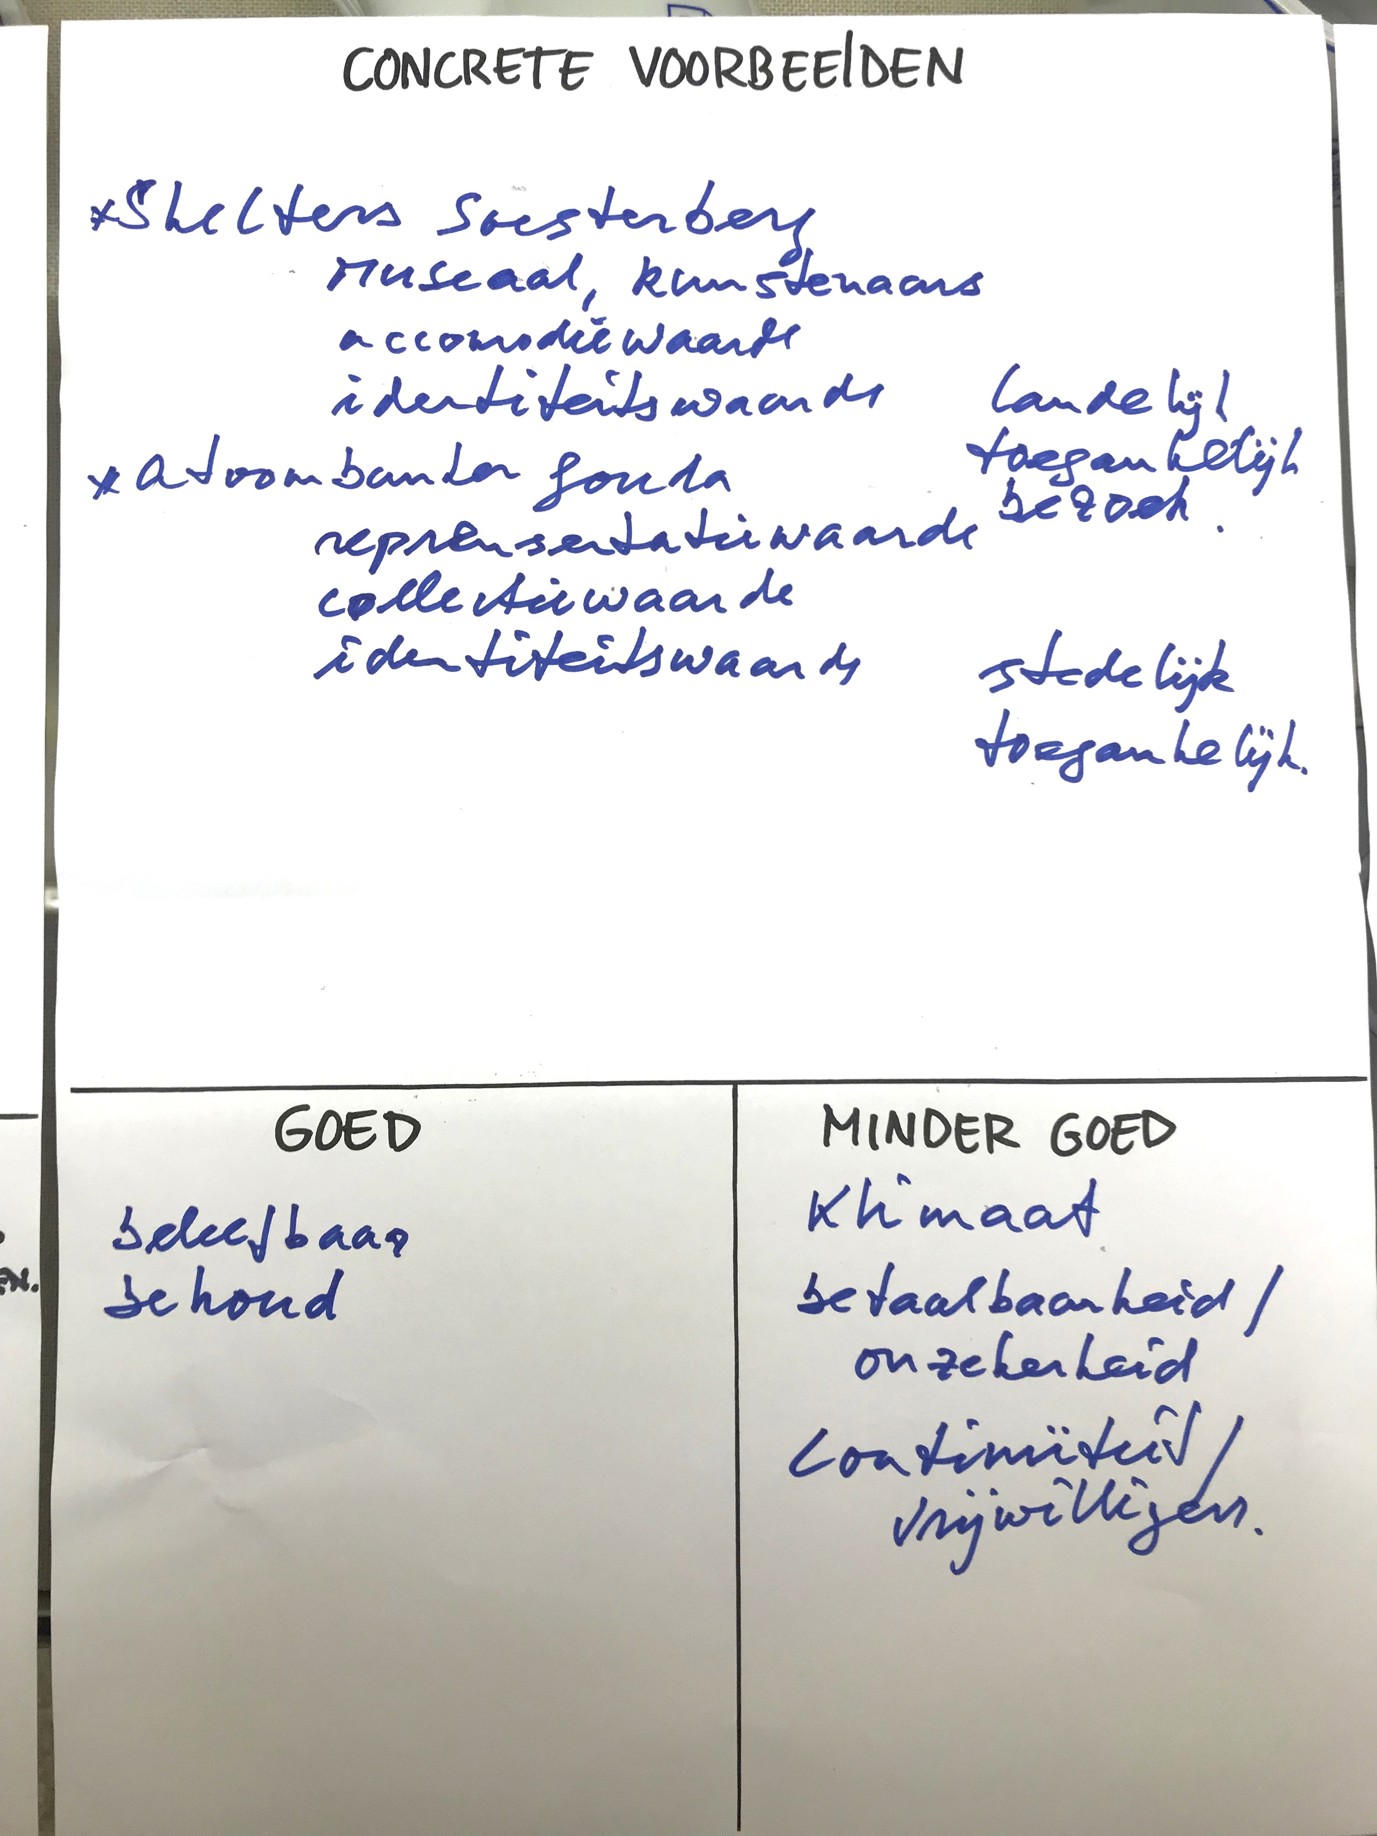 CONCRETE VOORBEELDEN
* Shelters Soesterberg
Museaal, kunstenaars
accomodiewaarde
identiteitswaarde
landelijk
toegankelijk
bezoek.
* Atoombunker Gouda
reprensentatiewaarde
collectiewaarde
identiteitswaarde
stedelijk
toegankelijk.
GOED
beleefbaar
behoud
MINDER GOED
Klimaat
betaalbaarheid /
onzekerheid
Continuïteit /
vrijwilligers.
EN.